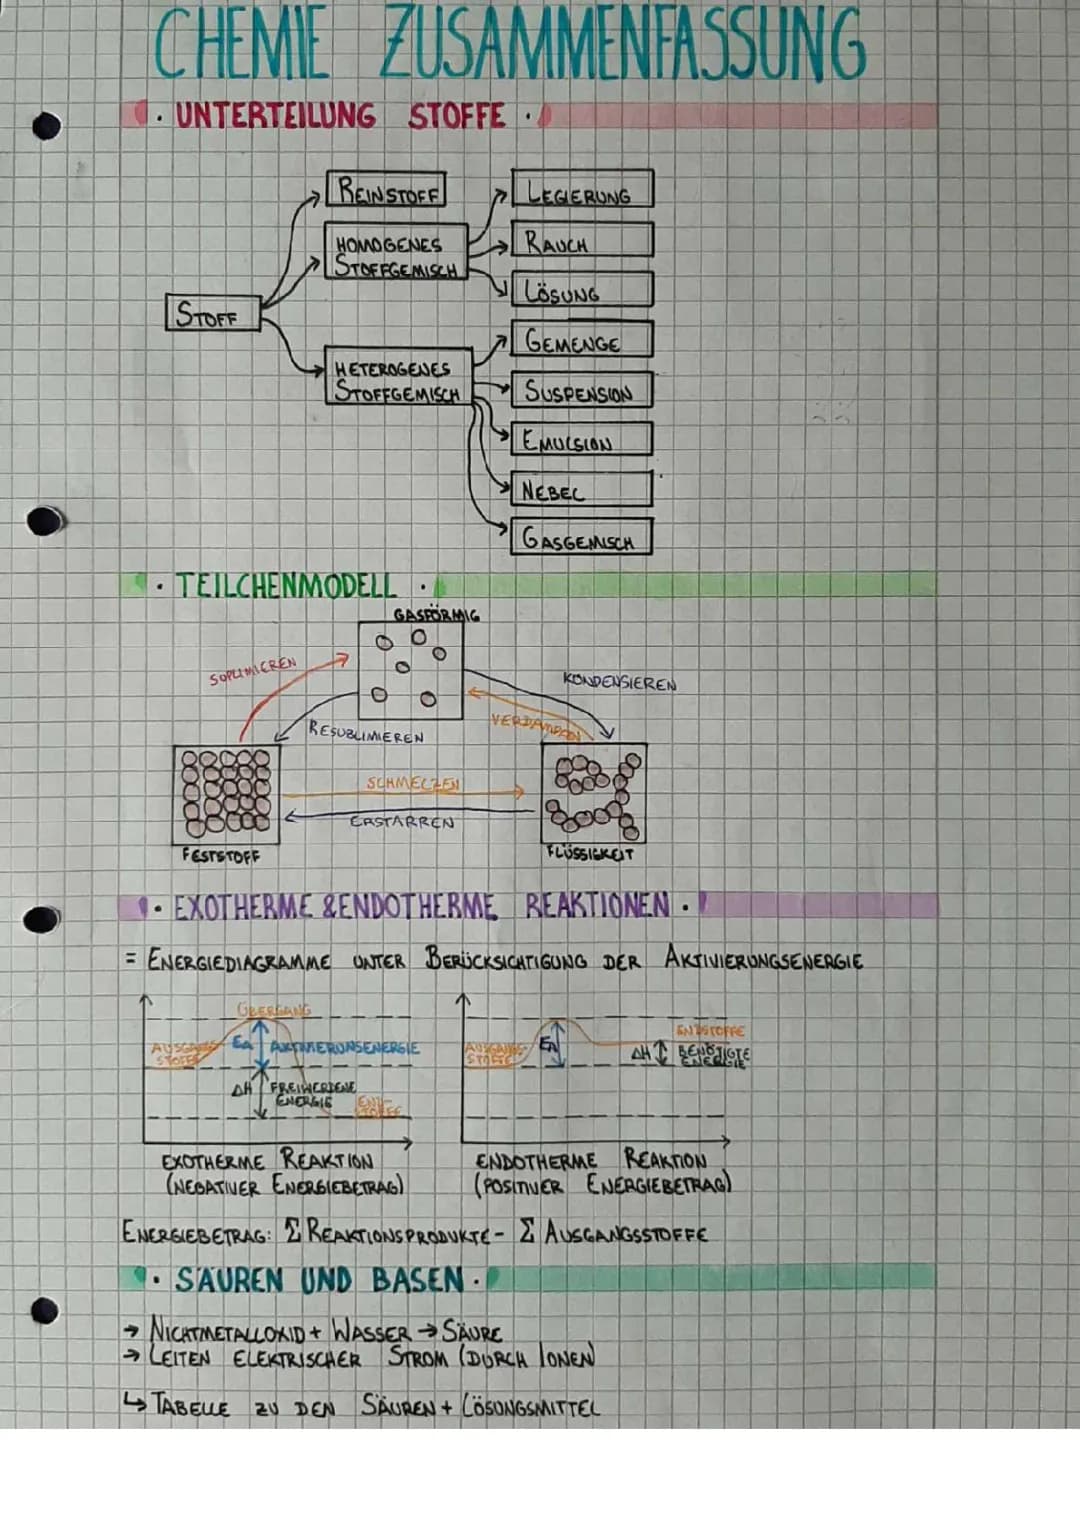 CHEMIE ZUSAMMENFASSUNG
· UNTERTEILUNG STOFFE ·
REINSTOFF
LEGIERUNG
HOMOGENES
STOFFGEMISCH
RAUCH
LÖSUNG
STOFF
GEMENGE
HETEROGENES
STOFFGEMISCH
SUSPENSION
EMULSION
NEBEL
GASGEMISCH
· TEILCHENMODELL ·
GASFÖRMIG
SUPLIMIEREN
KONDENSIEREN
RESUBLIMIEREN
VERDAMPFEN
SCHMELZEN
ERSTARREN
FESTSTOFF
FLÜSSIGKEIT
· EXOTHERME & ENDOTHERME REAKTIONEN ·
= ENERGIEDIAGRAMME UNTER BERÜCKSICHTIGUNG DER AKTIVIERUNGSENERGIE
ÜBERGANG
AUSGANGS-
STOFFE
EA AKTIVIERUNSENERGIE
ΔH FREIWERDENE
ENERGIE
END-
STOFFE
EXOTHERME REAKTION
(NEGATIVER ENERGIEBETRAG)
AUSGANGS-
STOFFE
EA
ENDSTOFFE
ΔH BENÖTIGTE
ENERGIE
ENDOTHERME REAKTION
(POSITIVER ENERGIEBETRAG)
ENERGIEBETRAG: Σ REAKTIONSPRODUKTE - Σ AUSGANGSSTOFFE
· SÄUREN UND BASEN ·
→ NICHTMETALLOXID + WASSER → SÄURE
→ LEITEN ELEKTRISCHER STROM (DURCH IONEN)
↳ TABELLE ZU DEN SÄUREN + LÖSUNGSMITTEL